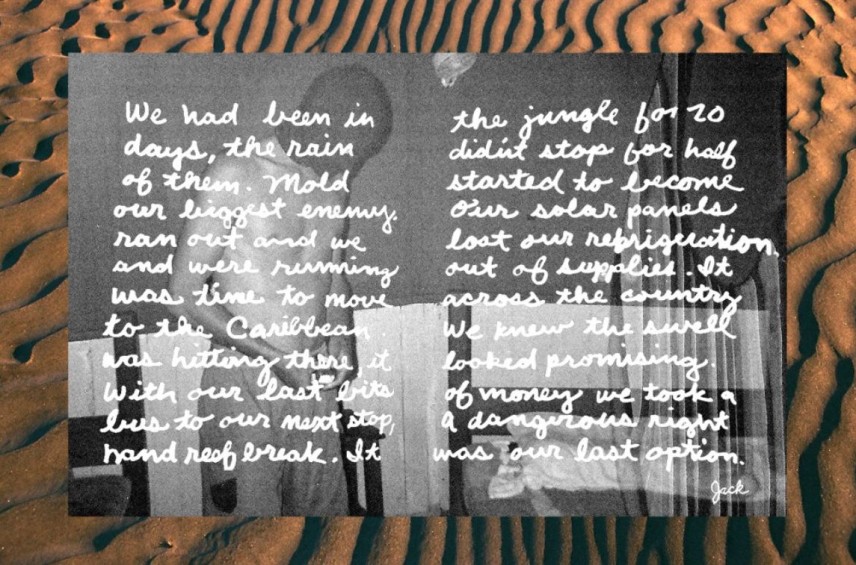 We had been in the jungle for 20
days, the rain didn't stop for half
of them. Mold started to become
our biggest enemy. Our solar panels
ran out and we lost our refrigeration
and were running out of supplies. It
was time to move across the country
to the Caribbean. We knew the swell
was hitting there it looked promising.
With our last bits of money we took a
bus to our next stop, a dangerous right
hand reef break. It was our last option.
Jack